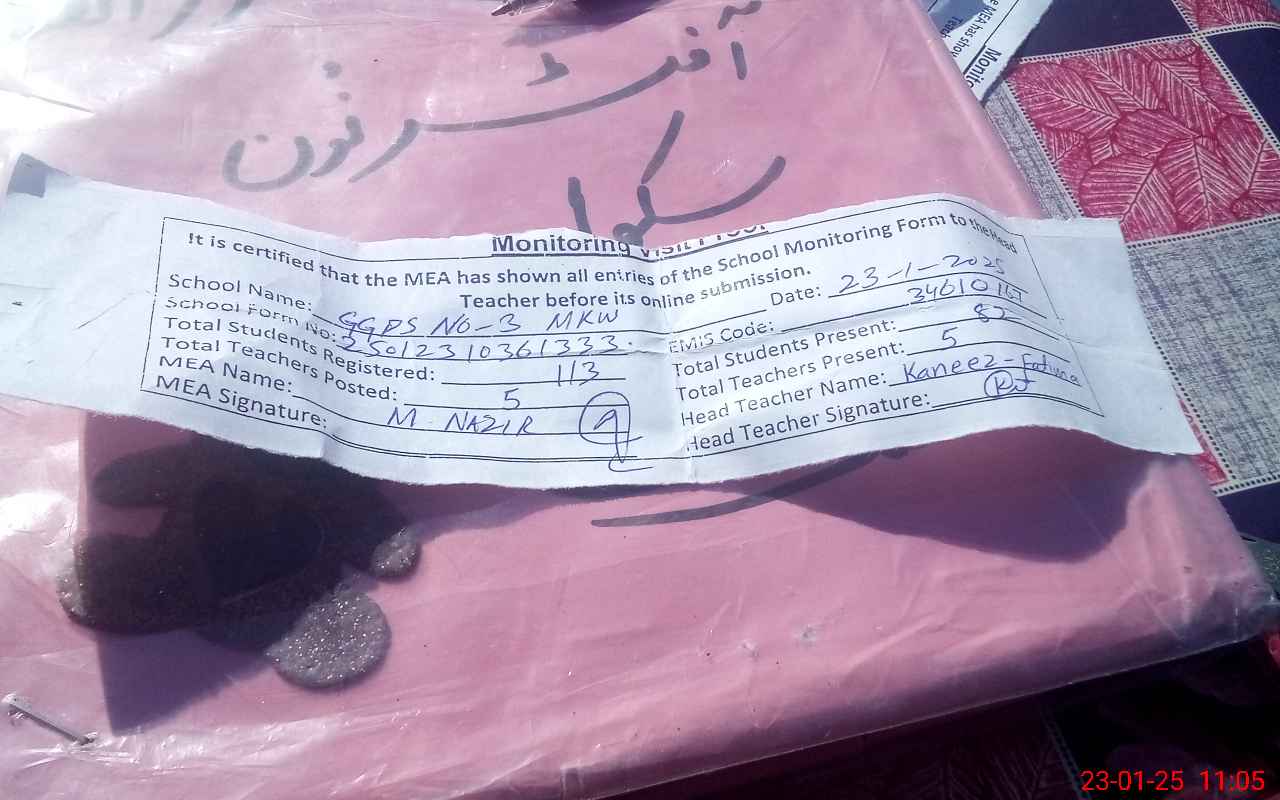 آفٹرنون
سکول
Monitoring Visit Proof
It is certified that the MEA has shown all entries of the School Monitoring Form to the Head
Teacher before its online submission.
School Name: GGPS NO-3 MKW Date: 23-1-2025
School Form No: 25012310361333. EMIS Code: 34610167
Total Students Registered: 113 Total Students Present: 82
Total Teachers Posted: 5 Total Teachers Present: 5
MEA Name: M. NAZIR Head Teacher Name: Kaneez-Fatima
MEA Signature: Head Teacher Signature:
e MEA has show
Teach
Monito
23-01-25 11:05